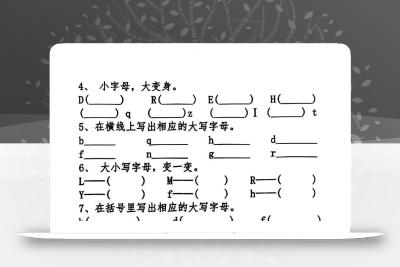 4、 小字母，大变身。
D(_____) R(_____) E(_____) H(_____)
(_____) q (_____)z (_____)I (_____) t
5、在横线上写出相应的大写字母。
b_____ q_____ h_____ d_____
f_____ n_____ g_____ r_____
6、 大小写字母，变一变。
L——( ) M——( ) R——( )
Y——( ) f——( ) h——( )
7、在括号里写出相应的大写字母。